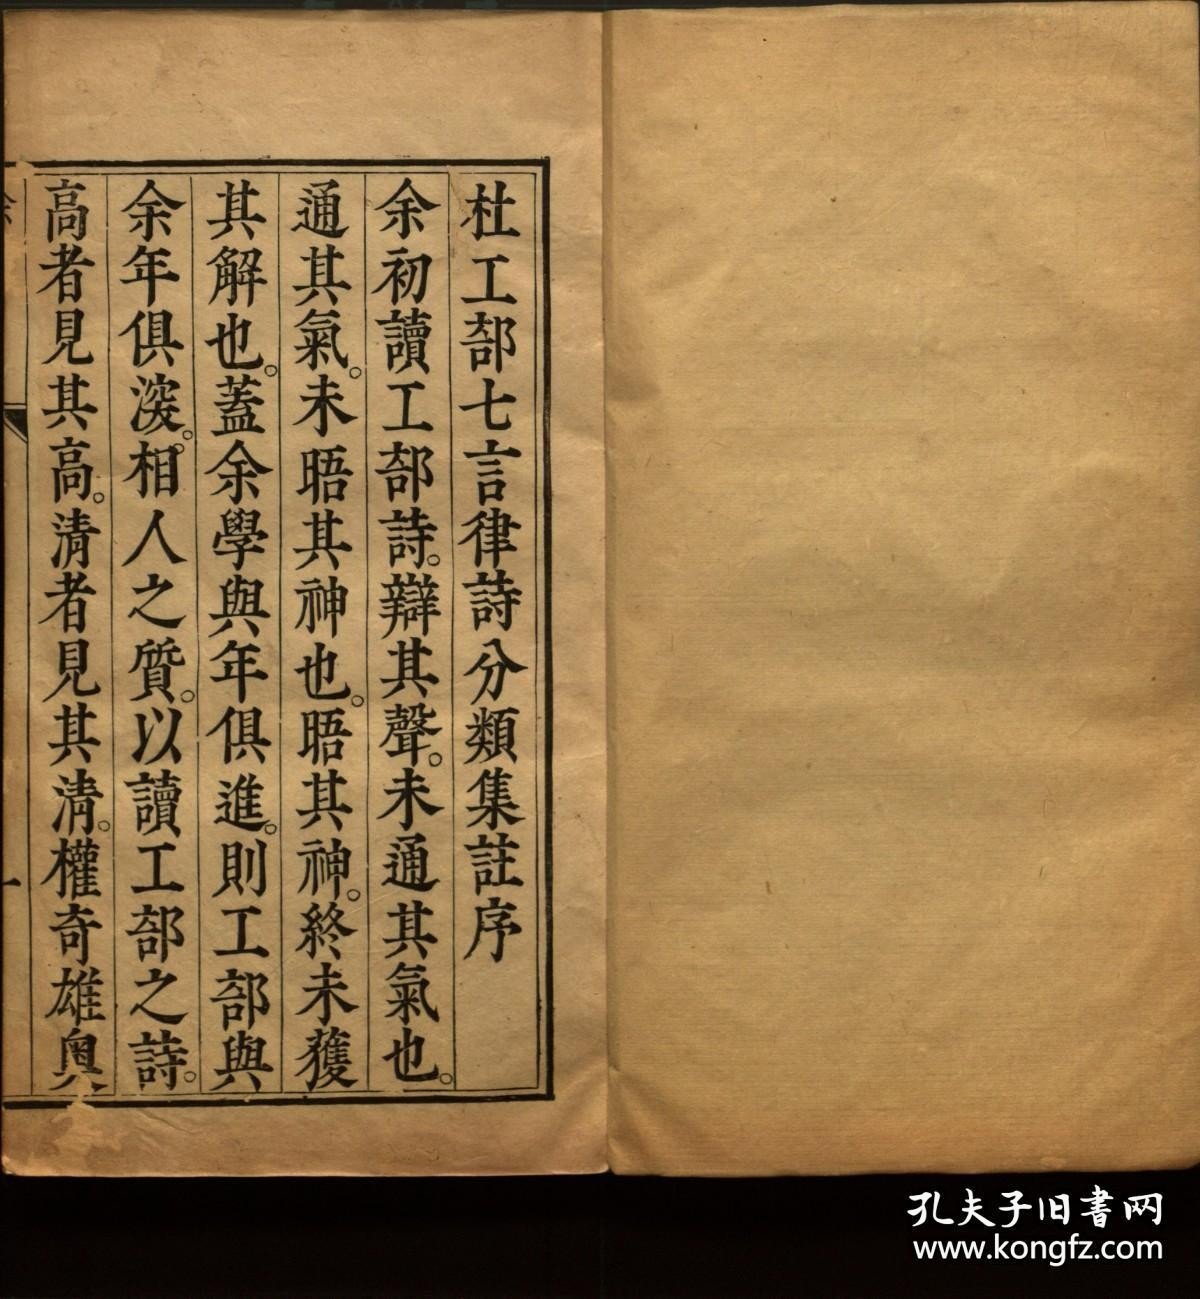 杜工部七言律詩分類集註序
余初讀工部詩。辯其聲。未通其氣也。
通其氣。未晤其神也。晤其神。終未獲
其解也。蓋余學與年俱進。則工部與
余年俱深。相人之質。以讀工部之詩。
高者見其高。清者見其清。權奇雄奧
一
孔夫子旧书网
www.kongfz.com